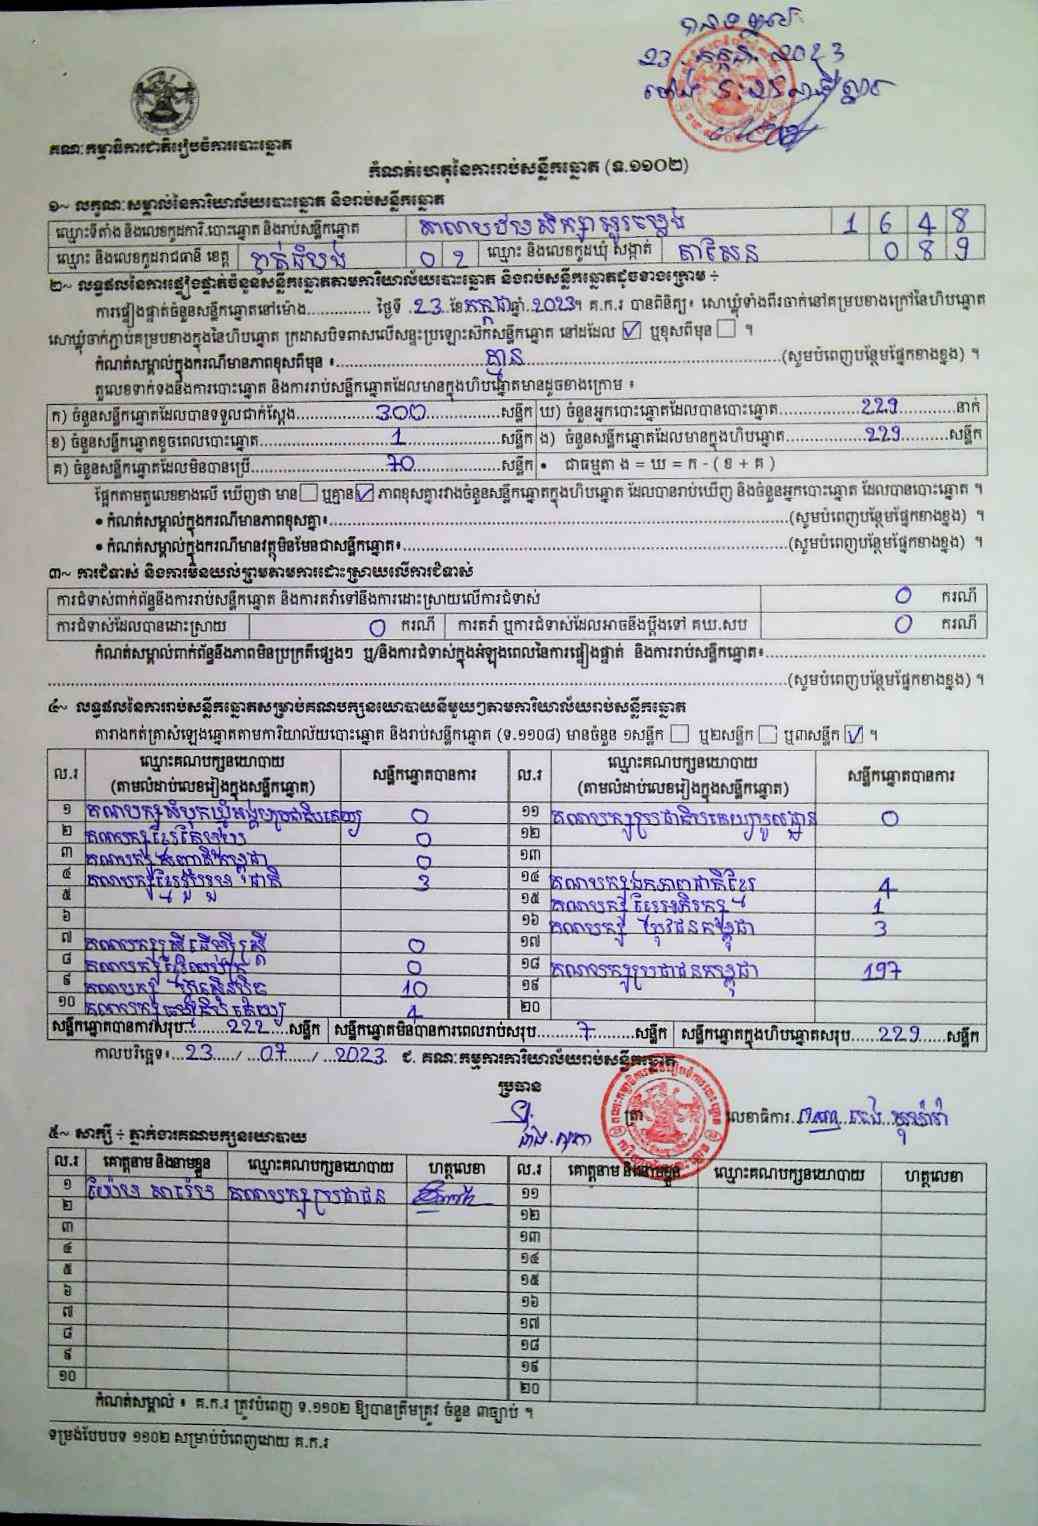 23 កក្កដា 2023
គណៈកម្មាធិការជាតិរៀបចំការបោះឆ្នោត
កំណត់ហេតុនៃការរាប់សន្លឹកឆ្នោត (ទ.១១០២)
១~ លក្ខណៈសម្គាល់នៃការិយាល័យបោះឆ្នោត និងរាប់សន្លឹកឆ្នោត
ឈ្មោះទីតាំង និងលេខកូដការិ.បោះឆ្នោត និងរាប់សន្លឹកឆ្នោត 1 6 4 8
ឈ្មោះ និងលេខកូដរាជធានី ខេត្ត បាត់ដំបង 0 2 ឈ្មោះ និងលេខកូដឃុំ សង្កាត់ តាសែន 0 8 9
២~ លទ្ធផលនៃការផ្ទៀងផ្ទាត់ចំនួនសន្លឹកឆ្នោតតាមការិយាល័យបោះឆ្នោត និងរាប់សន្លឹកឆ្នោតដូចខាងក្រោម ÷
ការផ្ទៀងផ្ទាត់ចំនួនសន្លឹកឆ្នោតនៅម៉ោង.............. ថ្ងៃទី .23..ខែកក្កដាឆ្នាំ.2023។ គ.ក.រ បានពិនិត្យ៖ សោឃ្លុំទាំងពីរចាក់នៅគម្របខាងក្រៅនៃហិបឆ្នោត
សោឃ្លុំចាក់ភ្ជាប់គម្របខាងក្នុងនៃហិបឆ្នោត ក្រដាសបិទពាសលើសន្ទះប្រឡោះស៊កសន្លឹកឆ្នោត នៅដដែល ☑ ឬខុសពីមុន ☐ ។
កំណត់សម្គាល់ក្នុងករណីមានភាពខុសពីមុន ៖ គ្មាន (សូមបំពេញបន្ថែមផ្នែកខាងខ្នង) ។
តួលេខទាក់ទងនឹងការបោះឆ្នោត និងការរាប់សន្លឹកឆ្នោតដែលមានក្នុងហិបឆ្នោតមានដូចខាងក្រោម ៖
ក) ចំនួនសន្លឹកឆ្នោតដែលបានទទួលជាក់ស្តែង 300 សន្លឹក ឃ) ចំនួនអ្នកបោះឆ្នោតដែលបានបោះឆ្នោត 229 នាក់
ខ) ចំនួនសន្លឹកឆ្នោតខូចពេលបោះឆ្នោត 1 សន្លឹក ង) ចំនួនសន្លឹកឆ្នោតដែលមានក្នុងហិបឆ្នោត 229 សន្លឹក
គ) ចំនួនសន្លឹកឆ្នោតដែលមិនបានប្រើ 70 សន្លឹក • ជាធម្មតា ង = ឃ = ក - ( ខ + គ )
ផ្អែកតាមតួលេខខាងលើ ឃើញថា មាន☐ ឬគ្មាន☑ ភាពខុសគ្នារវាងចំនួនសន្លឹកឆ្នោតក្នុងហិបឆ្នោត ដែលបានរាប់ឃើញ និងចំនួនអ្នកបោះឆ្នោត ដែលបានបោះឆ្នោត ។
• កំណត់សម្គាល់ក្នុងករណីមានភាពខុសគ្នា៖ (សូមបំពេញបន្ថែមផ្នែកខាងខ្នង) ។
• កំណត់សម្គាល់ក្នុងករណីមានវត្ថុមិនមែនជាសន្លឹកឆ្នោត៖ (សូមបំពេញបន្ថែមផ្នែកខាងខ្នង) ។
៣~ ការជំទាស់ និងការមិនយល់ព្រមតាមការដោះស្រាយលើការជំទាស់
ការជំទាស់ពាក់ព័ន្ធនឹងការរាប់សន្លឹកឆ្នោត និងការតវ៉ាទៅនឹងការដោះស្រាយលើការជំទាស់ 0 ករណី
ការជំទាស់ដែលបានដោះស្រាយ 0 ករណី ការតវ៉ា ឬការជំទាស់ដែលអាចនឹងប្តឹងទៅ គឃ.សប 0 ករណី
កំណត់សម្គាល់ពាក់ព័ន្ធនឹងភាពមិនប្រក្រតីផ្សេងៗ ឬ/និងការជំទាស់ក្នុងអំឡុងពេលនៃការផ្ទៀងផ្ទាត់ និងការរាប់សន្លឹកឆ្នោត៖
(សូមបំពេញបន្ថែមផ្នែកខាងខ្នង) ។
៤~ លទ្ធផលនៃការរាប់សន្លឹកឆ្នោតសម្រាប់គណបក្សនយោបាយនីមួយៗតាមការិយាល័យរាប់សន្លឹកឆ្នោត
តារាងកត់ត្រាសំឡេងឆ្នោតតាមការិយាល័យបោះឆ្នោត និងរាប់សន្លឹកឆ្នោត (ទ.១១០៨) មានចំនួន ១សន្លឹក ☐ ឬ២សន្លឹក ☐ ឬ៣សន្លឹក ☑ ។
ល.រ ឈ្មោះគណបក្សនយោបាយ (តាមលំដាប់លេខរៀងក្នុងសន្លឹកឆ្នោត) សន្លឹកឆ្នោតបានការ ល.រ ឈ្មោះគណបក្សនយោបាយ (តាមលំដាប់លេខរៀងក្នុងសន្លឹកឆ្នោត) សន្លឹកឆ្នោតបានការ
១ គណបក្សសំបុកឃ្មុំសង្គមប្រជាធិបតេយ្យ 0 ១១ គណបក្សប្រជាធិបតេយ្យមូលដ្ឋាន 0
២ គណបក្សខ្មែរតែមួយ 0 ១២
៣ គណបក្ស 0 ១៣
៤ គណបក្សខ្មែររួបរួមជាតិ 3 ១៤ គណបក្សឯកភាពជាតិខ្មែរ 4
៥ ១៥ គណបក្សខ្មែរអភិរក្ស 1
៦ ១៦ គណបក្សយុវជនកម្ពុជា 3
៧ គណបក្សស្ត្រីដើម្បីស្ត្រី 0 ១៧
៨ គណបក្ស 0 ១៨ គណបក្សប្រជាជនកម្ពុជា 197
៩ គណបក្សហ៊្វុនស៊ិនប៉ិច 10 ១៩
១០ គណបក្សធម្មាធិបតេយ្យ 4 ២០
សន្លឹកឆ្នោតបានការសរុប 222 សន្លឹក សន្លឹកឆ្នោតមិនបានការពេលរាប់សរុប 7 សន្លឹក សន្លឹកឆ្នោតក្នុងហិបឆ្នោតសរុប 229 សន្លឹក
កាលបរិច្ឆេទ៖ 23 / 07 / 2023 ជ. គណៈកម្មការការិយាល័យរាប់សន្លឹកឆ្នោត
ប្រធាន
ត្រា លេខាធិការ
៥~ សាក្សី ÷ ភ្នាក់ងារគណបក្សនយោបាយ
ល.រ គោត្តនាម និងនាមខ្លួន ឈ្មោះគណបក្សនយោបាយ ហត្ថលេខា ល.រ គោត្តនាម និងនាមខ្លួន ឈ្មោះគណបក្សនយោបាយ ហត្ថលេខា
១ គណបក្សប្រជាជន ១១
២ ១២
៣ ១៣
៤ ១៤
៥ ១៥
៦ ១៦
៧ ១៧
៨ ១៨
៩ ១៩
១០ ២០
កំណត់សម្គាល់ ៖ គ.ក.រ ត្រូវបំពេញ ទ.១១០២ ឱ្យបានត្រឹមត្រូវ ចំនួន ៣ច្បាប់ ។
ទម្រង់បែបបទ ១១០២ សម្រាប់បំពេញដោយ គ.ក.រ